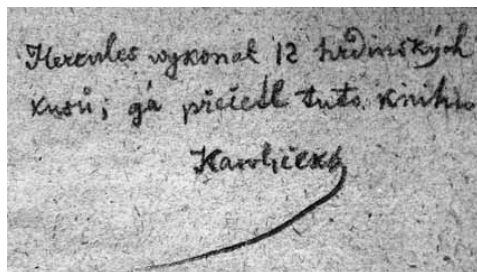 Hercules wykonal 12 hrdinských
kusů; gá přečetl tuto knihu
Hawljček